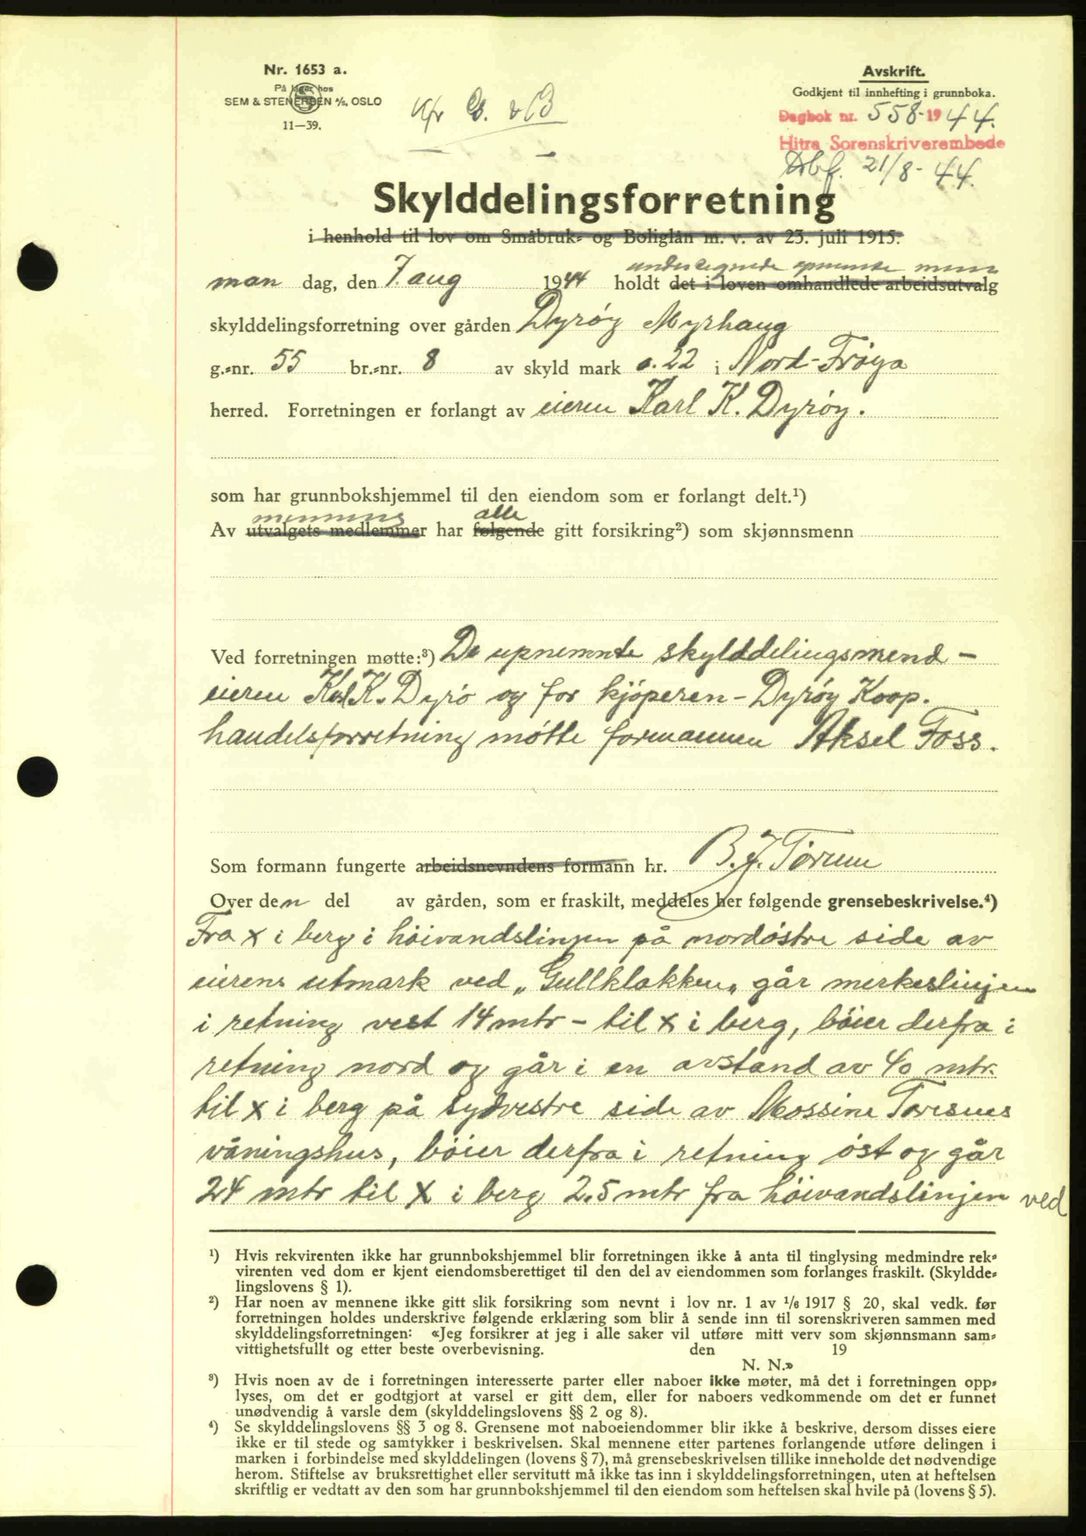 Nr. 1653 a.
På lager hos
SEM & STENERSEN A/S, OSLO
11—39.
Avskrift.
Godkjent til innhefting i grunnboka.
Dagbok nr. 558-1944.
Hitra Sorenskriverembede
Dbf. 21/8-44.
Skylddelingsforretning
i henhold til lov om Småbruk- og Boliglån m. v. av 23. juli 1915.
undertegnede opnemnte menn
man dag, den 7. aug 1944 holdt det i loven omhandlede arbeidsutvalg
skylddelingsforretning over gården Dyrøy Myrhaug
g.-nr. 55 br.-nr. 8 av skyld mark 0.22 i Nord-Frøya
herred. Forretningen er forlangt av eieren Karl K. Dyrøy.
som har grunnbokshjemmel til den eiendom som er forlangt delt.¹)
mennene alle
Av utvalgets medlemmer har følgende gitt forsikring²) som skjønnsmenn
Ved forretningen møtte:³) De upnemnte skylddelingsmend -
eieren Karl K. Dyrø og for kjöperen - Dyrøy Koop.
handelsforretning møtte formannen Aksel Foss.
Som formann fungerte arbeidsnevndens formann hr. B. J. Tørum
Over den del av gården, som er fraskilt, meddeles her følgende grensebeskrivelse.⁴)
Fra x i berg i höivandslinjen på nordöstre side av
eierens utmark ved „Gullklakken„ går merkeslinjen
i retning vest 14 mtr - til x i berg, böier derfra i
retning nord og går i en avstand av 40 mtr.
til x i berg på sydvestre side av Mossine Toresens
våningshus, böier derfra i retning öst og går
24 mtr til x i berg 2.5 mtr fra höivandslinjen ved
¹) Hvis rekvirenten ikke har grunnbokshjemmel blir forretningen ikke å anta til tinglysing medmindre rek-
virenten ved dom er kjent eiendomsberettiget til den del av eiendommen som forlanges fraskilt. (Skyldde-
lingslovens § 1).
²) Har noen av mennene ikke gitt slik forsikring som nevnt i lov nr. 1 av 1/6 1917 § 20, skal vedk. før
forretningen holdes underskrive følgende erklæring som blir å sende inn til sorenskriveren sammen med
skylddelingsforretningen: «Jeg forsikrer at jeg i alle saker vil utføre mitt verv som skjønnsmann sam-
vittighetsfullt og etter beste overbevisning. den 19
N. N.»
³) Hvis noen av de i forretningen interesserte parter eller naboer ikke møter, må det i forretningen opp-
lyses, om det er godtgjort at varsel er gitt dem, eller for naboers vedkommende om det er funnet
unødvendig å varsle dem (skylddelingslovens §§ 2 og 8).
⁴) Se skylddelingslovens §§ 3 og 8. Grensene mot naboeiendommer blir ikke å beskrive, dersom disses eiere
ikke er til stede og samtykker i beskrivelsen. Skal mennene etter partenes forlangende utføre delingen i
marken i forbindelse med skylddelingen (lovens § 7), må grensebeskrivelsen tillike inneholde det nødvendige
herom. Stiftelse av bruksrettighet eller servitutt må ikke tas inn i skylddelingsforretningen, uten at heftelsen
skriftlig er vedtatt av den som har grunnbokshjemmel til den eiendom som heftelsen skal hvile på (lovens § 5).